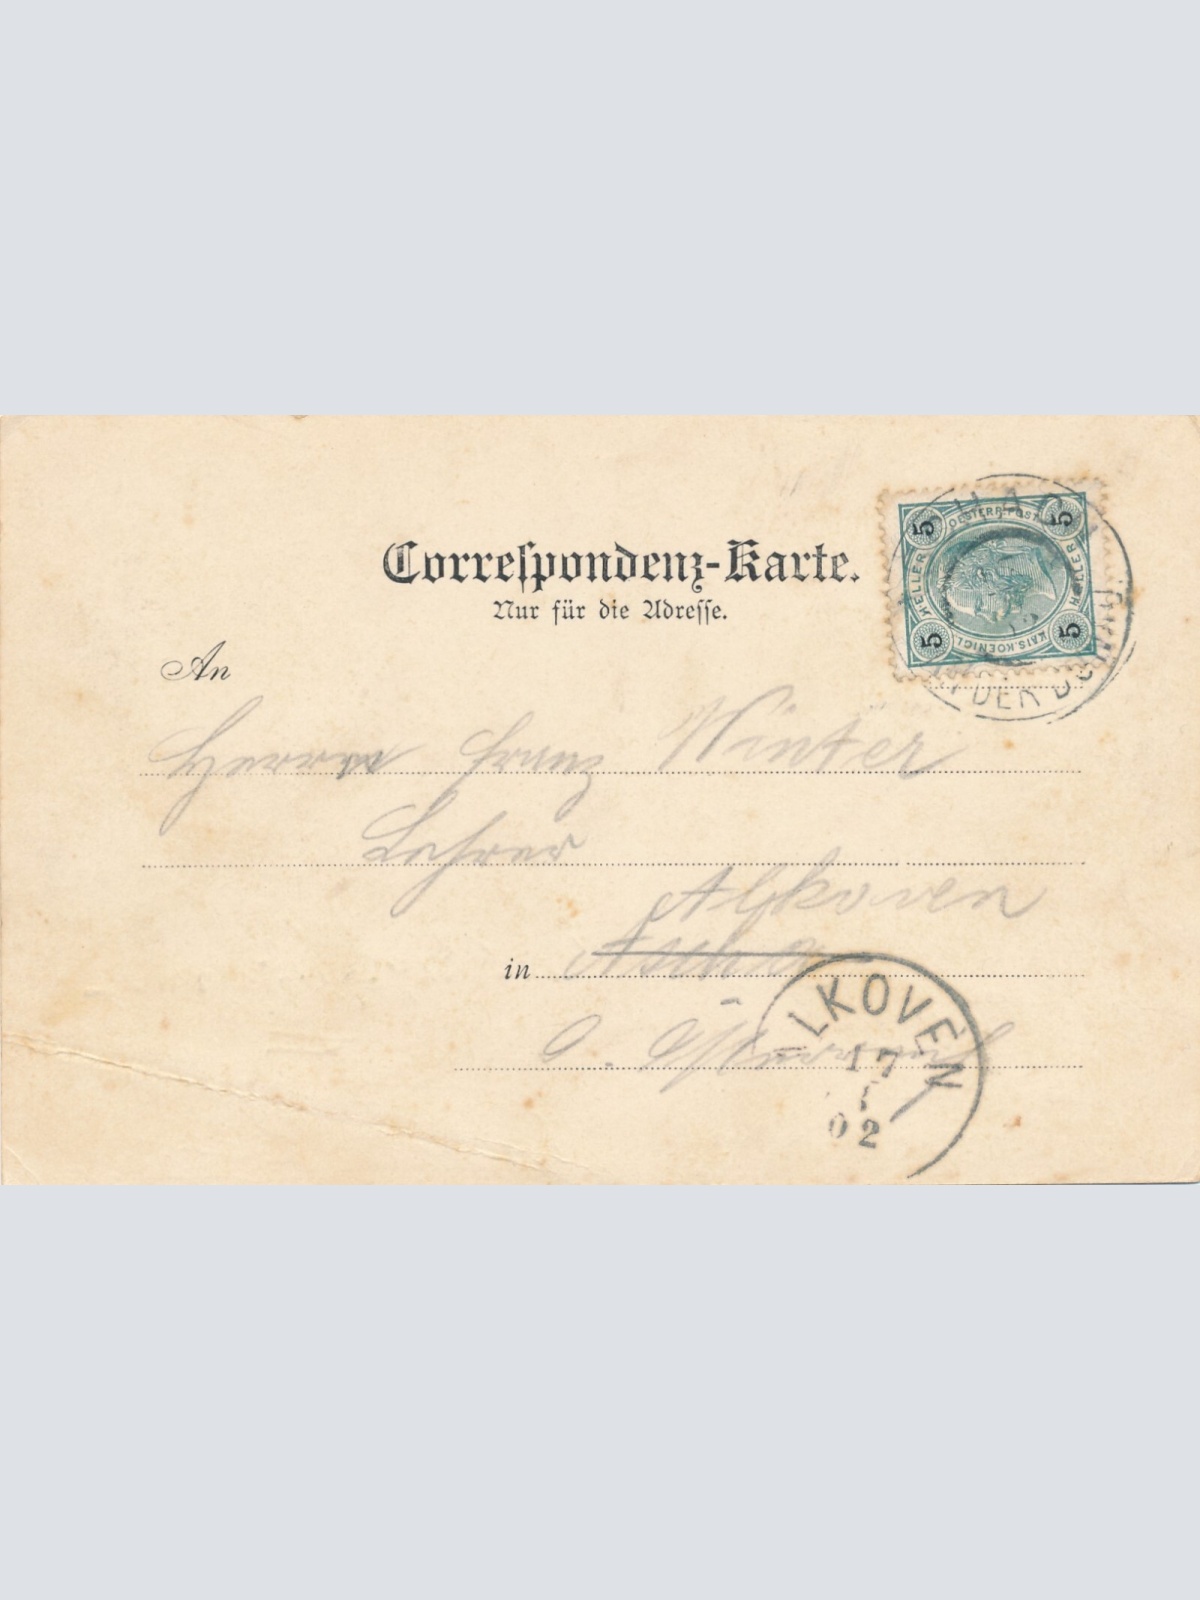 Correſpondenz-Karte.
Nur für die Adreſſe.
5 OESTERR. POST 5
HELLER HELLER
5 KAIS. KOENIGL. 5
DER DO
An
Herrn Franz Winter
Lehrer
Alkoven
in
O. Österreich
LKOVEN
17
02